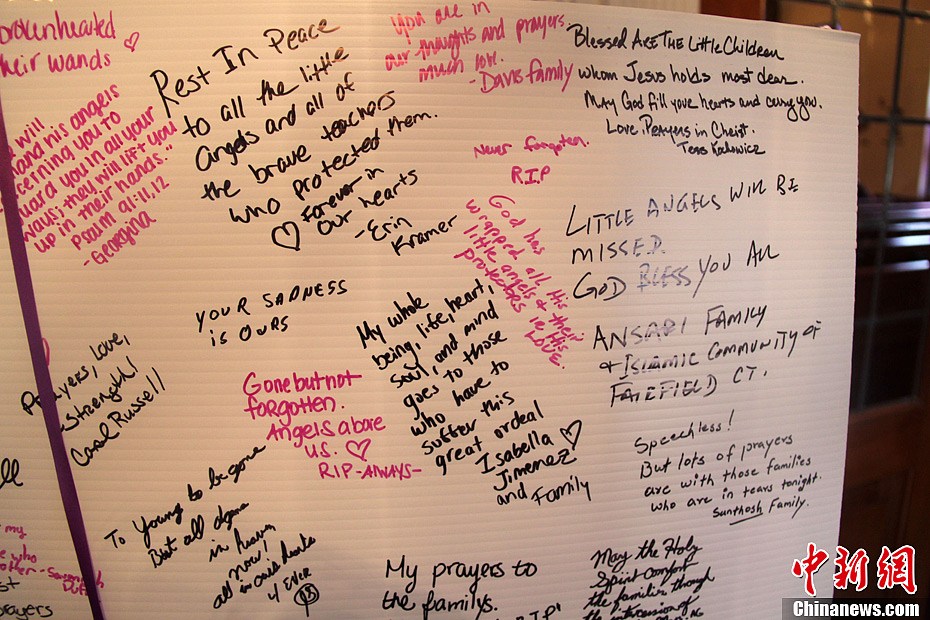 brokenhearted
their wands
will
and his angels
cerning you to
guard you in all your
ways; they will lift you
up in their hands."
Psalm 91:11,12
-Georgina
Rest In Peace
to all the little
angels and all of
the brave teachers
who protected them.
Forever in
our hearts
-Erin
Kramer
You are in
our thoughts and prayers.
much love.
-Davis family
Blessed Are The Little Children
whom Jesus holds most dear.
May God fill your hearts and carry you.
Love, Prayers in Christ.
Tess
Never forgotten.
R.I.P
God has
wrapped all His
little angels & their
protectors in His
LOVE.
LITTLE ANGELS WILL BE
MISSED.
GOD BLESS YOU ALL
ANSARI FAMILY
& ISLAMIC COMMUNITY OF
FAIEFIELD CT.
YOUR SADNESS
is OURS
My whole
being, life, heart,
soul, and mind
goes to those
who have to
suffer this
great ordeal
Isabella
Jimenez
and Family
Prayers, Love,
Strength!
Carol Russell
Gone but not
forgotten.
Angels above
us.
RIP-ALWAYS-
Speechless!
But lots of prayers
are with those families
who are in tears tonight.
Sunthosh Family.
To Young to be gone
But all
in heaven
now!
all in our hearts
4 EVER
my
who
prayers
My prayers to
the familys.
RIP
May the Holy
Spirit comfort
the families through
the intercession of
中新网
Chinanews.com